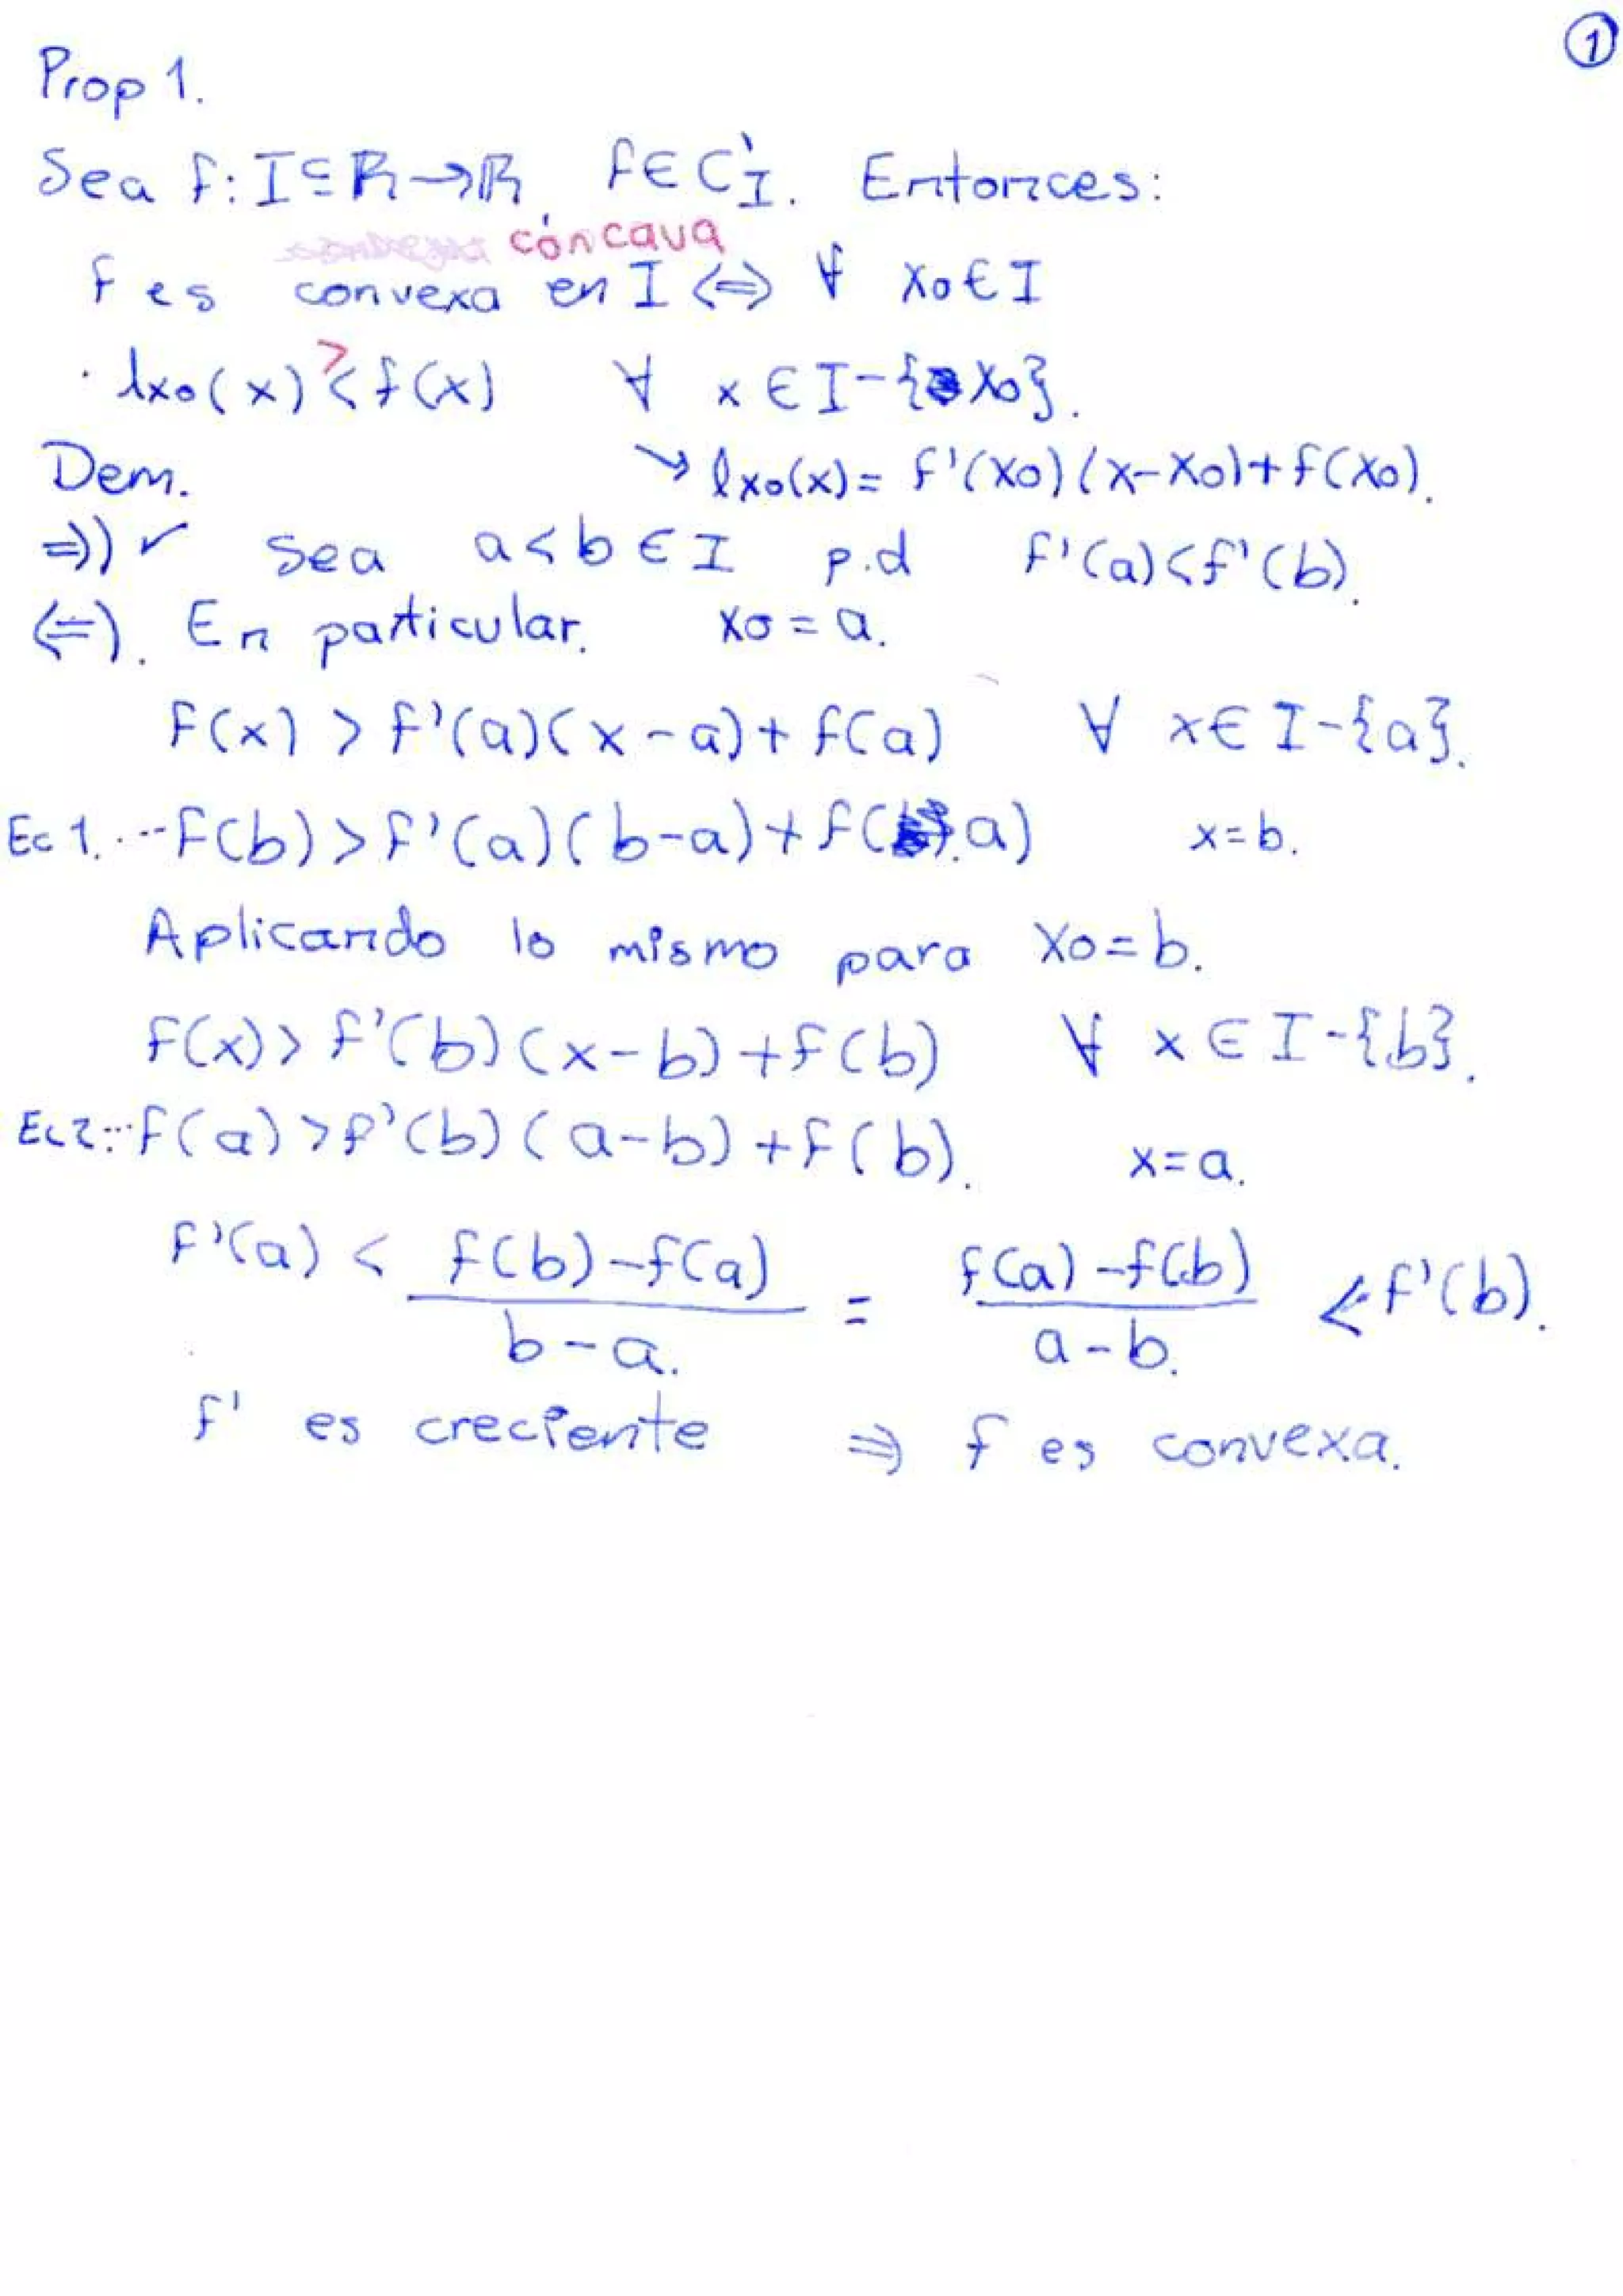 ①
Prop 1.
Sea f: I ⊆ ℝ → ℝ f ∈ C¹_I. Entonces:
cóncava
f es convexa en I ⟺ ∀ x₀ ∈ I
>
l_x₀(x) < f(x) ∀ x ∈ I - {x₀}.
Dem. ↘ l_x₀(x) = f'(x₀)(x - x₀) + f(x₀).
⇒) ✓ Sea a < b ∈ I p.d f'(a) < f'(b).
⇐). En particular. x₀ = a.
f(x) > f'(a)(x - a) + f(a) ∀ x ∈ I - {a}.
Ec 1. ... f(b) > f'(a)(b - a) + f(a) x = b.
Aplicando lo mismo para x₀ = b.
f(x) > f'(b)(x - b) + f(b) ∀ x ∈ I - {b}.
Ec 2 ... f(a) > f'(b)(a - b) + f(b). x = a.
f'(a) < (f(b) - f(a))/(b - a.) = (f(a) - f(b))/(a - b.) < f'(b).
f' es creciente ⇒ f es convexa.